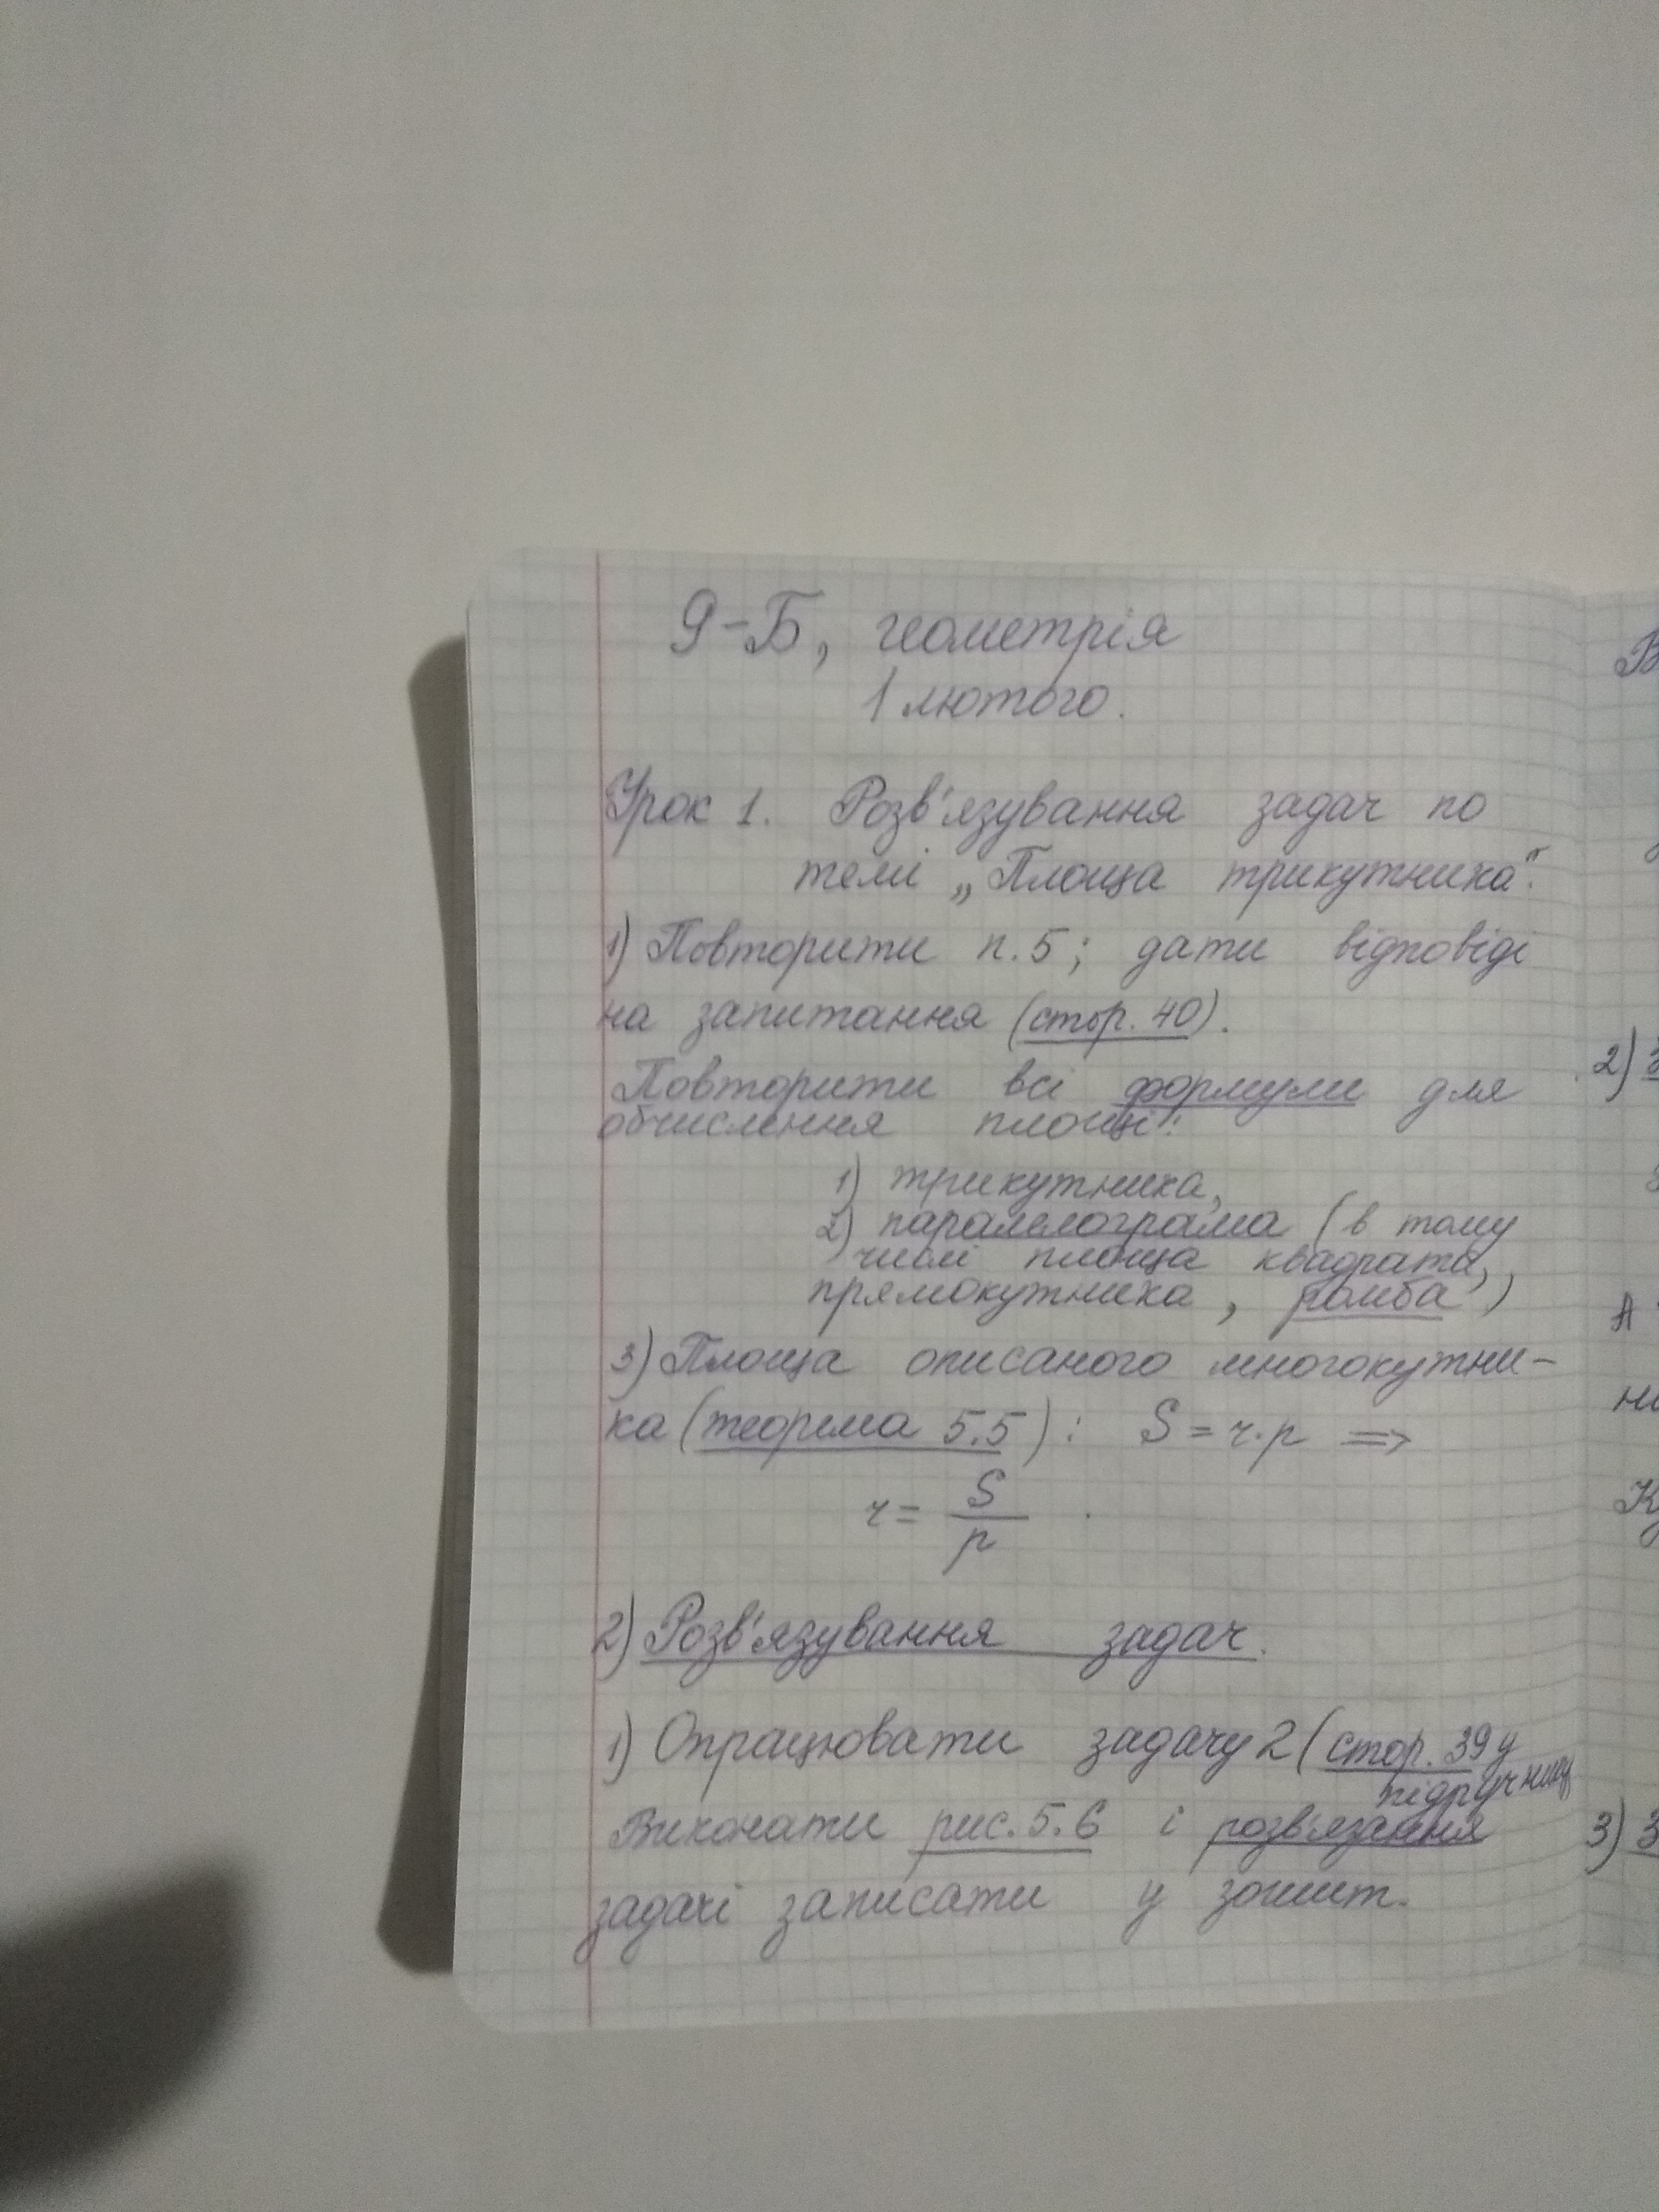 9-Б, геометрія
1 лютого.
Урок 1. Розв'язування задач по
темі „Площа трикутника".
1) Повторити п.5; дати відповіді
на запитання (стор. 40).
Повторити всі формули для
обчислення площі:
1) трикутника,
2) паралелограма (в тому
числі площа квадрата,
прямокутника, ромба)
3) Площа описаного многокутни-
ка (теорема 5.5): S = r·p ⇒
r = S/p.
2) Розв'язування задач.
1) Опрацювати задачу 2 (стор. 39 у
підручнику
Виконати рис. 5.6 і розв'язання
задачі записати у зошит.
В
2) З
А
Ку
3) З